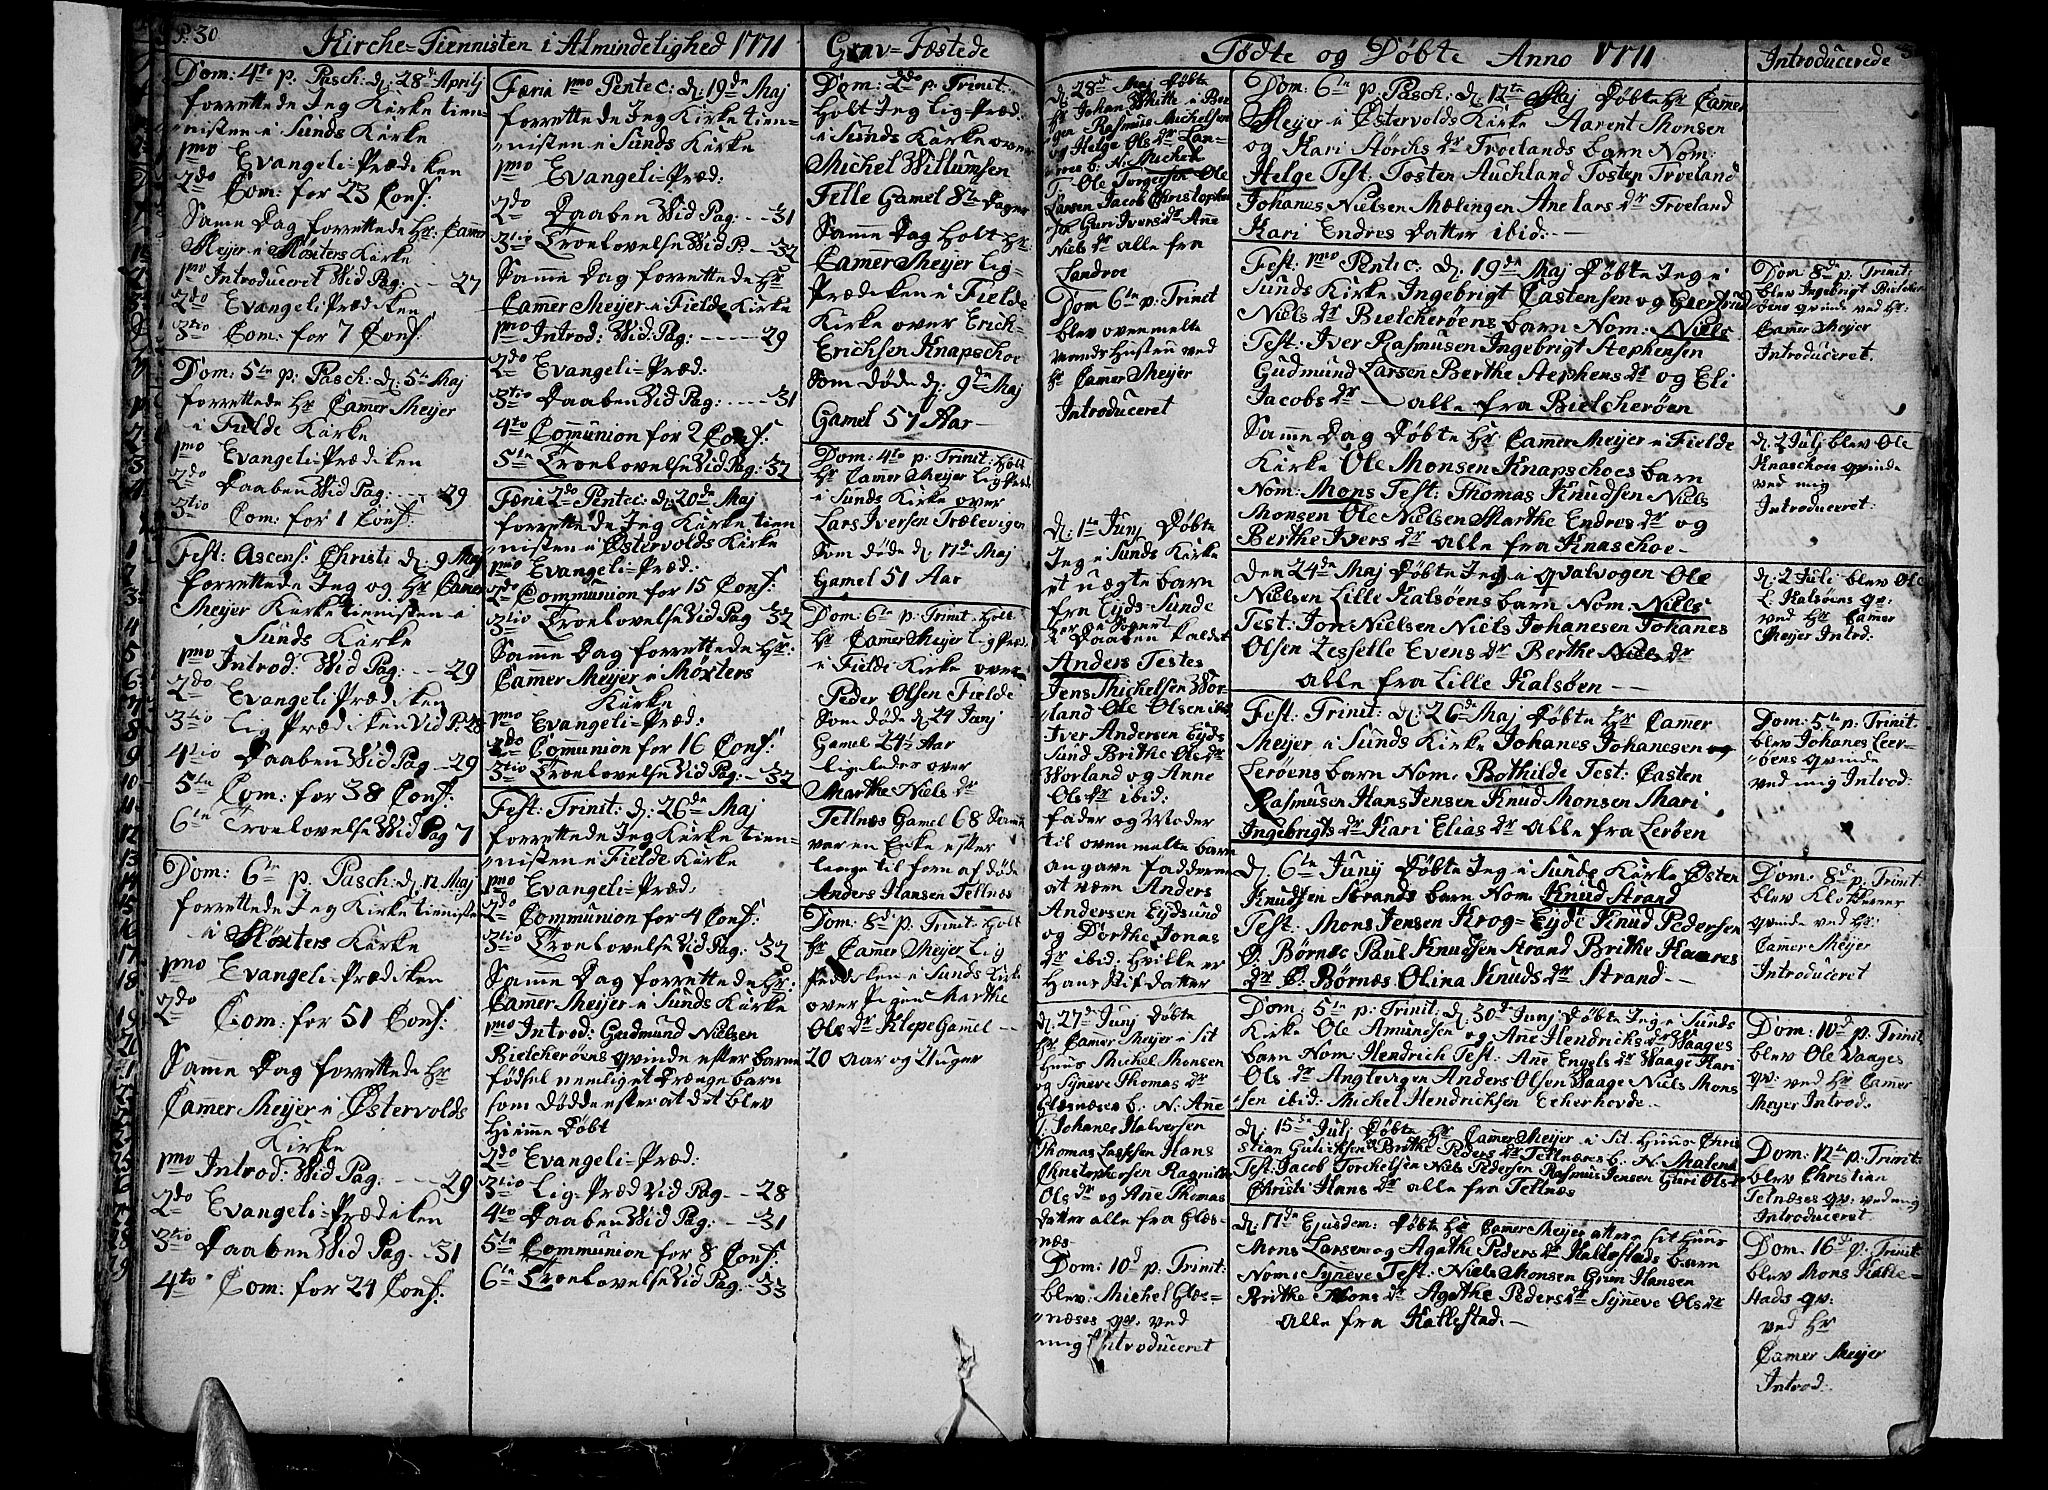 P: 30
Kirche-Tiennisten i Almindelighed 1771
Grav-Fæstede
Dom: 4to p. Pasch: d: 28de Aprilj
forrettede Jeg Kirke tien-
nisten i Sunds Kirke
1mo Evangeli-Prædiken
2do Com: for 23 Conf:
Samme Dag forrettede Hr. Camer
Meijer i Møxters Kirke
1mo Introduceret Vid Pag: -- 27
2do Evangeli-Prædiken
3tio Com: for 7 Conf:
Dom: 5te p: Pasch: d: 5te Maj
forrettede Hr Camer Meijer
i Fielde Kirke
1mo Evangeli-Prædiken
2do Daaben Vid Pag: -- 29
3tio Com: for 1 Conf:
Fest: Ascens: Christi d: 9 Maj
forrettede Jeg og Hr Camer
Meijer Kirke tiennisten i
Sunds Kirke
1mo Introd: Vid Pag: -- 29
2do Evangeli Prædiken
3tio Lig Prædiken Vid P: 28
4tio Daaben Vid Pag -- 29
5te Com: for 38 Conf:
6te Troelovelse Vid Pag 7
Dom: 6te p. Pasch: d: 12 Maj
forrettede Jeg Kirke tienniste
i Møxters Kirke
1mo Evangeli-Prædiken
2do Com: for 51 Conf:
Samme Dag forrettede Hr
Camer Meijer i Østervolds
Kirke
1mo Introd: Vid Pag: --- 29
2do Evangeli-Prædiken
3tio Daaben Vid Pag - 31
4to Com: for 24 Conf:
Færia 1mo Pentec: d: 19de Maj
forrettede Jeg Kirke tien-
nisten i Sunds Kirke
1mo Evangeli-Præd:
2do Daaben Vid Pag: -- 31
3tio Troelovelse Vid P: - 32
Samme Dag forrettede Hr
Camer Meijer i Fielde Kirke
1mo Introd: Vid Pag: ----- 29
2do Evangeli-Præd:
3tio Daaben Vid Pag: ---- 31
4to Communion for 2 Conf:
5te Troelovelse Vid Pag: 32
Færia 2do Pentec: d: 20de Maj
forrettede Jeg Kirke tien
nisten i Østervolds Kirke
1mo Evangeli-Præd:
2do Communion for 15 Conf:
3tio Troelovelse Vid Pag 32
Samme Dag forrettede Hr:
Camer Meijer i Møxters
Kirke
1mo Evangeli-Præd:
2do Communion for 16 Conf:
3tio Troelovelse Vid Pag: - 32
Fest: Trinit: d: 26de Maj
forrettede Jeg Kirke tien-
nisten i Fielde Kirke
1mo Evangeli-Præd:
2do Communion for 4 Conf:
3tio Troelovelse Vid Pag: 32
Samme Dag forrettede Hr:
Camer Meijer i Sunds Kirke
1mo Introd: Gudmund Nielsen
Bielcherøens qvinde efter barne
fødsel nemlig et Drænge barn
som Dødde efter at det blev
hiemme Døbt
2do Evangeli-Præd:
3tio Lig-Præd Vid Pag -- 28
4to Daaben Vid Pag: -- 31
5te Communion for 8 Conf:
6te Troelovelse Vid Pag - 33
Dom: 2do p: Trinit:
Holt Jeg Lig-Præd:
i Sunds Kirke over
Michel Willumsen
Fille Gamel 82 Dager
Samme Dag Holt Hr
Camer Meijer Lig-
Prædiken i Fielde
Kirke over Erich
Erichsen Knapschoe
som døde d: 9de Maj
Gamel 57 Aar
Dom: 4to p: Trinit: Holt
Hr Camer Meijer Lig Præd:
i Sunds Kirke over
Lars Iversen Trælevigen
som døde d: 17de Maj
Gamel 51 Aar
Dom: 6te p: Trinit: Holt
Hr Camer Meijer Lig Præd:
i Fielde Kirke over
Peder Olsen Fielde
som døde d: 24 Junj
Gamel 24½ Aar
ligeledes over
Marthe Niels dr
Tellnæs Gamel 68
var en Enke efter
Anders Hansen Tellnæs
Dom: 8de p: Trinit: Holt
Hr Camer Meijer Lig
Prædiken i Sunds Kirke
over Pigen Marthe
Ols dr Klepe Gamel --
20 aar og Uuger
Fødte og Døbte Anno 1771
Introducerede
d: 28d Maj Døbte
Hr Johan Witte i Ber
gen Rasmus Michelsen
og Helge Ols dr San-
droes b: N: Michel
T: Ole Torgersen Ole
Larsen Jacob Christophers
sen Guri Ivers dr Ane
Niels dr alle fra
Sandroe
Dom 6te p: Trinit
blev ovenmelte
Hr Camer Meijer
Introduceret
d: 1te Junj Døbte
Jeg i Sunds Kirke
et uægte barn
fra Eyds Sunde
i Daaben kaldet
Anders Testes
Jens Michelsen Vor-
land Ole Olsen ibid
Iver Andersen Eyds
sund Brithe Ols dr
Worland og Anne
Ols dr ibid:
fader og Moder
til ovenmelte barn
angave fadderne
at være Anders
Andersen Eydsund
og Dorthe Jonas
dr ibid: Hvilke er
d: 27de Junj Døbte
Hr Camer Meijer i sit
Huus Michel Monsen
og Syneve Thomas dr
Glæsnæses b: N: Ane
T: Johanes Halversen
Thomas Lassesen Hans
Christophersen Ragnille
Ols dr og Ane Thomas
datter alle fra Glæs-
næs -
Dom: 10d p: Trinit:
blev: Michel Glæs-
næses qv: ved
mig Introduceret
Dom: 6te p: Pasch: d: 12te Maj Døbte Hr Camer
Meijer i Østervolds Kirke Aarent Monsen
og Kari Størchs dr Troelands barn Nom:
Helge Test: Tosten Auchland Tosten Troeland
Johanes Nielsen Mælingen Ane Lars dr Troeland
Kari Endres Datter ibid: --
Fest: 1mo Pentec: d: 19de Maj Døbte Jeg i
Sunds Kirke Ingebrigt Castensen og Giertrud
Niels dr Bielcherøens barn Nom: Niels
Test: Iver Rasmusen Ingebrigt Stephensen
Gudmund Larsen Berthe Stephens dr og Eli
Jacobs dr -- alle fra Bielcherøen
Samme Dag Døbte Hr Camer Meijer i Fielde
Kirke Ole Monsen Knapschoes barn
Nom: Mons Test: Thomas Knudsen Niels
Monsen Ole Nielsen Marthe Endres dr og
Berthe Ivers dr alle fra Knaschoe --
Den 24de Maj Døbte Jeg i Qvalvogen Ole
Nielsen Lille Kalsøens barn Nom: Niels
Test: Jon Nielsen Niels Johanesen Johanes
Olsen Zesselle Evens dr Berthe Niels dr
alle fra Lille Kalsøen --
Fest: Trinit: d: 26de Maj Døbte Hr Camer
Meijer i Sunds Kirke Johanes Johanesen og
Lerøens barn Nom: Bothilde Test: Casten
Rasmusen Hans Jensen Knud Monsen Mari
Ingebrigts dr Kari Elias dr alle fra Lerøen
d: 6te Junij Døbte Jeg i Sunds Kirke Østen
Knudsen Strands barn Nom: Knud Strand
Test: Mons Jensen Krog-Eyde Knud Pedersen
Ø: Børnæs Paul Knudsen Strand Brithe Haares
dr Ø: Børnæs Olina Knuds dr Strand --
Dom: 5te p: Trinit: d: 30de Junj Døbte Jeg i Sunds
Kirke Ole Amundsen og Ane Hendrichs dr Vaages
barn Nom: Hendrich Test: Ane Engels dr Vaage Kari
Ols dr Anglevigen Anders Olsen Vaage Niels Mons
sen ibid: Michel Hendrichsen Eckerhovde --
d: 15de Julj Døbte Hr Camer Meijer i sit Huus Chris
stian Gulichsen Brithe Peders dr Tellnæses b: N: Malena
Test: Jacob Torchelsen Niels Pedersen Rasmus Jensen Guri Ols dr
Christi Hans dr alle fra Tellnæs
d: 17de Ejusdem: Døbte Hr Camer Meijer atter i sit Huus
Mons Larsen og Agathe Peders dr Kallestads barn
Nom: Syneve Test: Niels Monsen Griim Hansen
Brithe Mons dr Agathe Peders dr Syneve Ols dr
alle fra Kallestad --
Dom 8de p: Trinit:
blev Ingebrigt Bielcher
øens qvinde ved Hr:
Camer Meijer
Introduceret.
d: 2 Julj blev Ole
Knaschoes qvinde
ved mig
Introduceret:
d: 2 Juli blev Ole
L: Kalsøens qv:
ved Hr Camer
Meijer Introd:
Dom: 5te p: Trinit:
blev Johanes Leer-
øens qvinde
ved mig Introd:
Dom: 8de p: Trinit:
blev Klokkerens
qvinde ved Hr:
Camer Meijer
Introduceret
Dom: 10d p: Trinit:
blev Ole Vaages
qv: ved Hr Camer
Meijer Introd:
Dom: 12te p: Trinit:
blev Christian
Telnæses qv: ved mig
Introduceret
Dom: 16d p: Trinit:
blev Mons Kalle-
stads qv:
ved Hr
Camer Meijer
Introd: